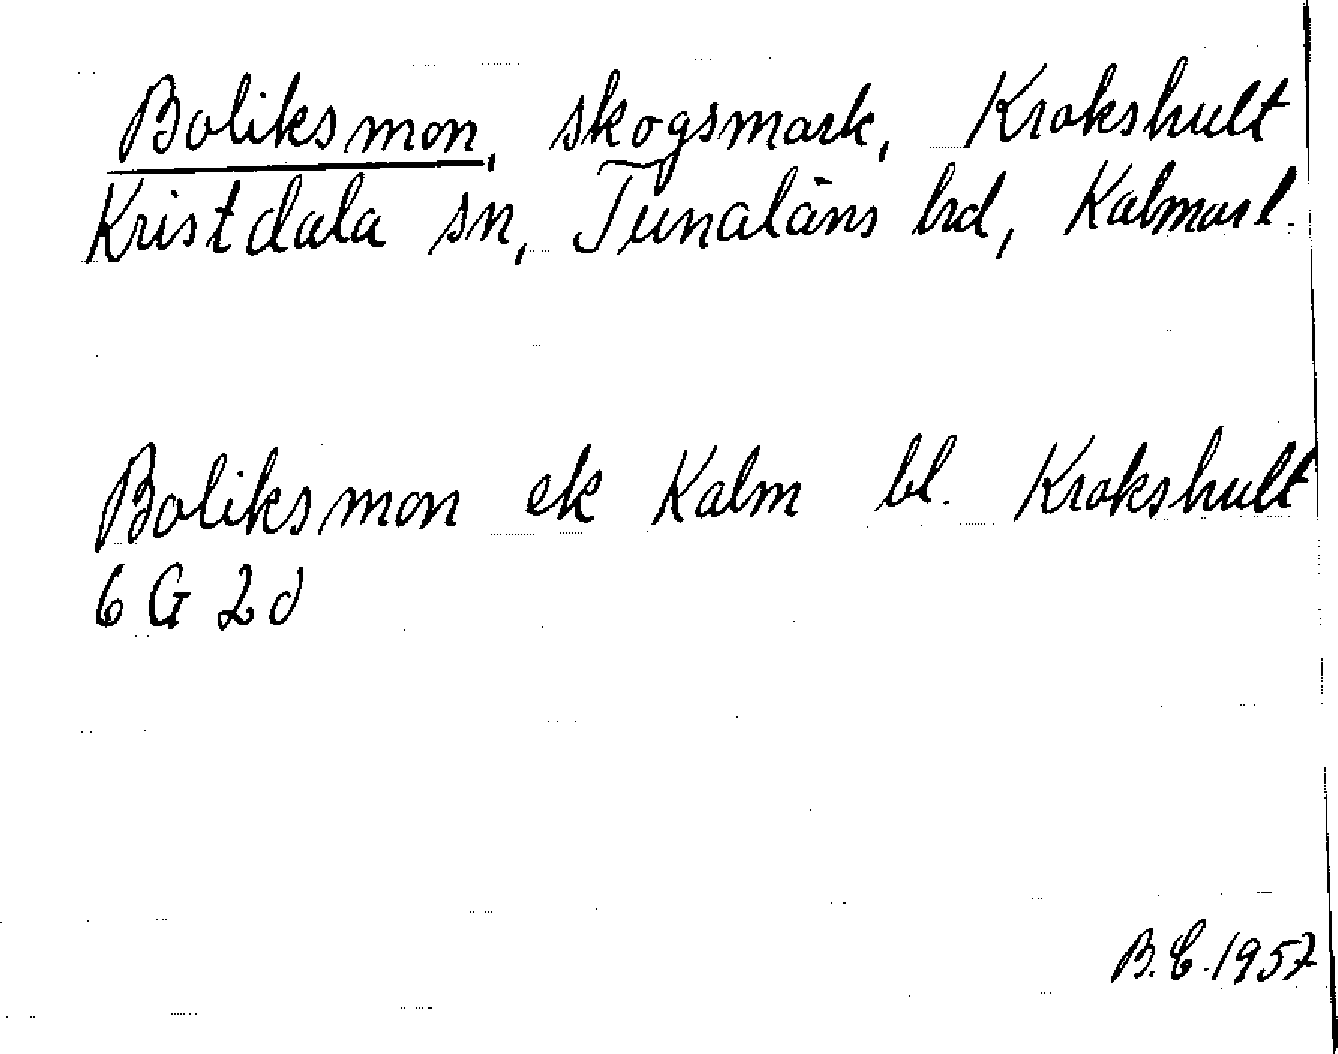 Boliksmon, skogsmark, Krokshult
Kristdala sn, Tunaläns hd, Kalmar l.
Boliksmon ek Kalm bl. Krokshult
6 G 2d
B.E. 1957